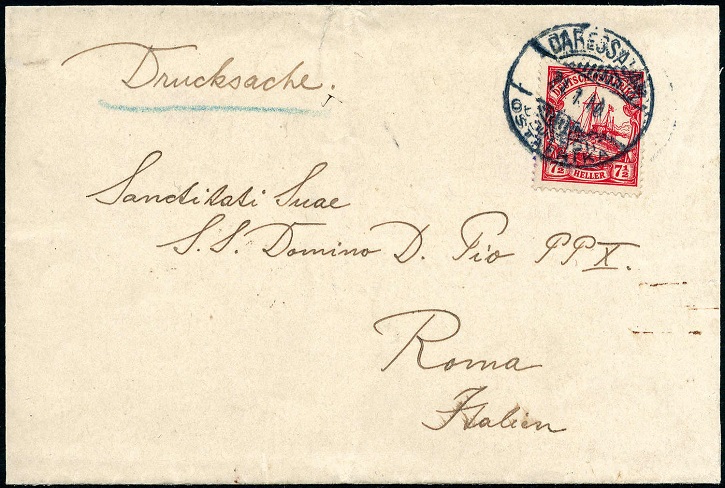 Drucksache.
DARESSA
DEUTSCH-OSTAFRIKA
7½ HELLER 7½
Sanctitati Suae
S.S. Domino D. Pio PP X.
Roma
Italien